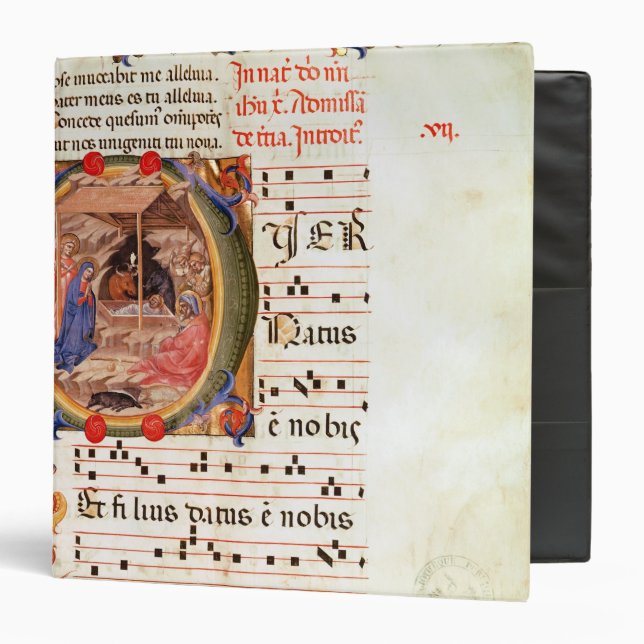 muccabit me alleluia.
meus es tu alleluia.
Concede quesumꝰ omnipotẽs
nos unigeniti tui noua.
In nat̃ dõ nr̃i
ihũ x̃. Ad missã
de tc̃ia. Introit̃.
.vij.
YER
Natus
ẽ nobis
Et filius datus ẽ nobis